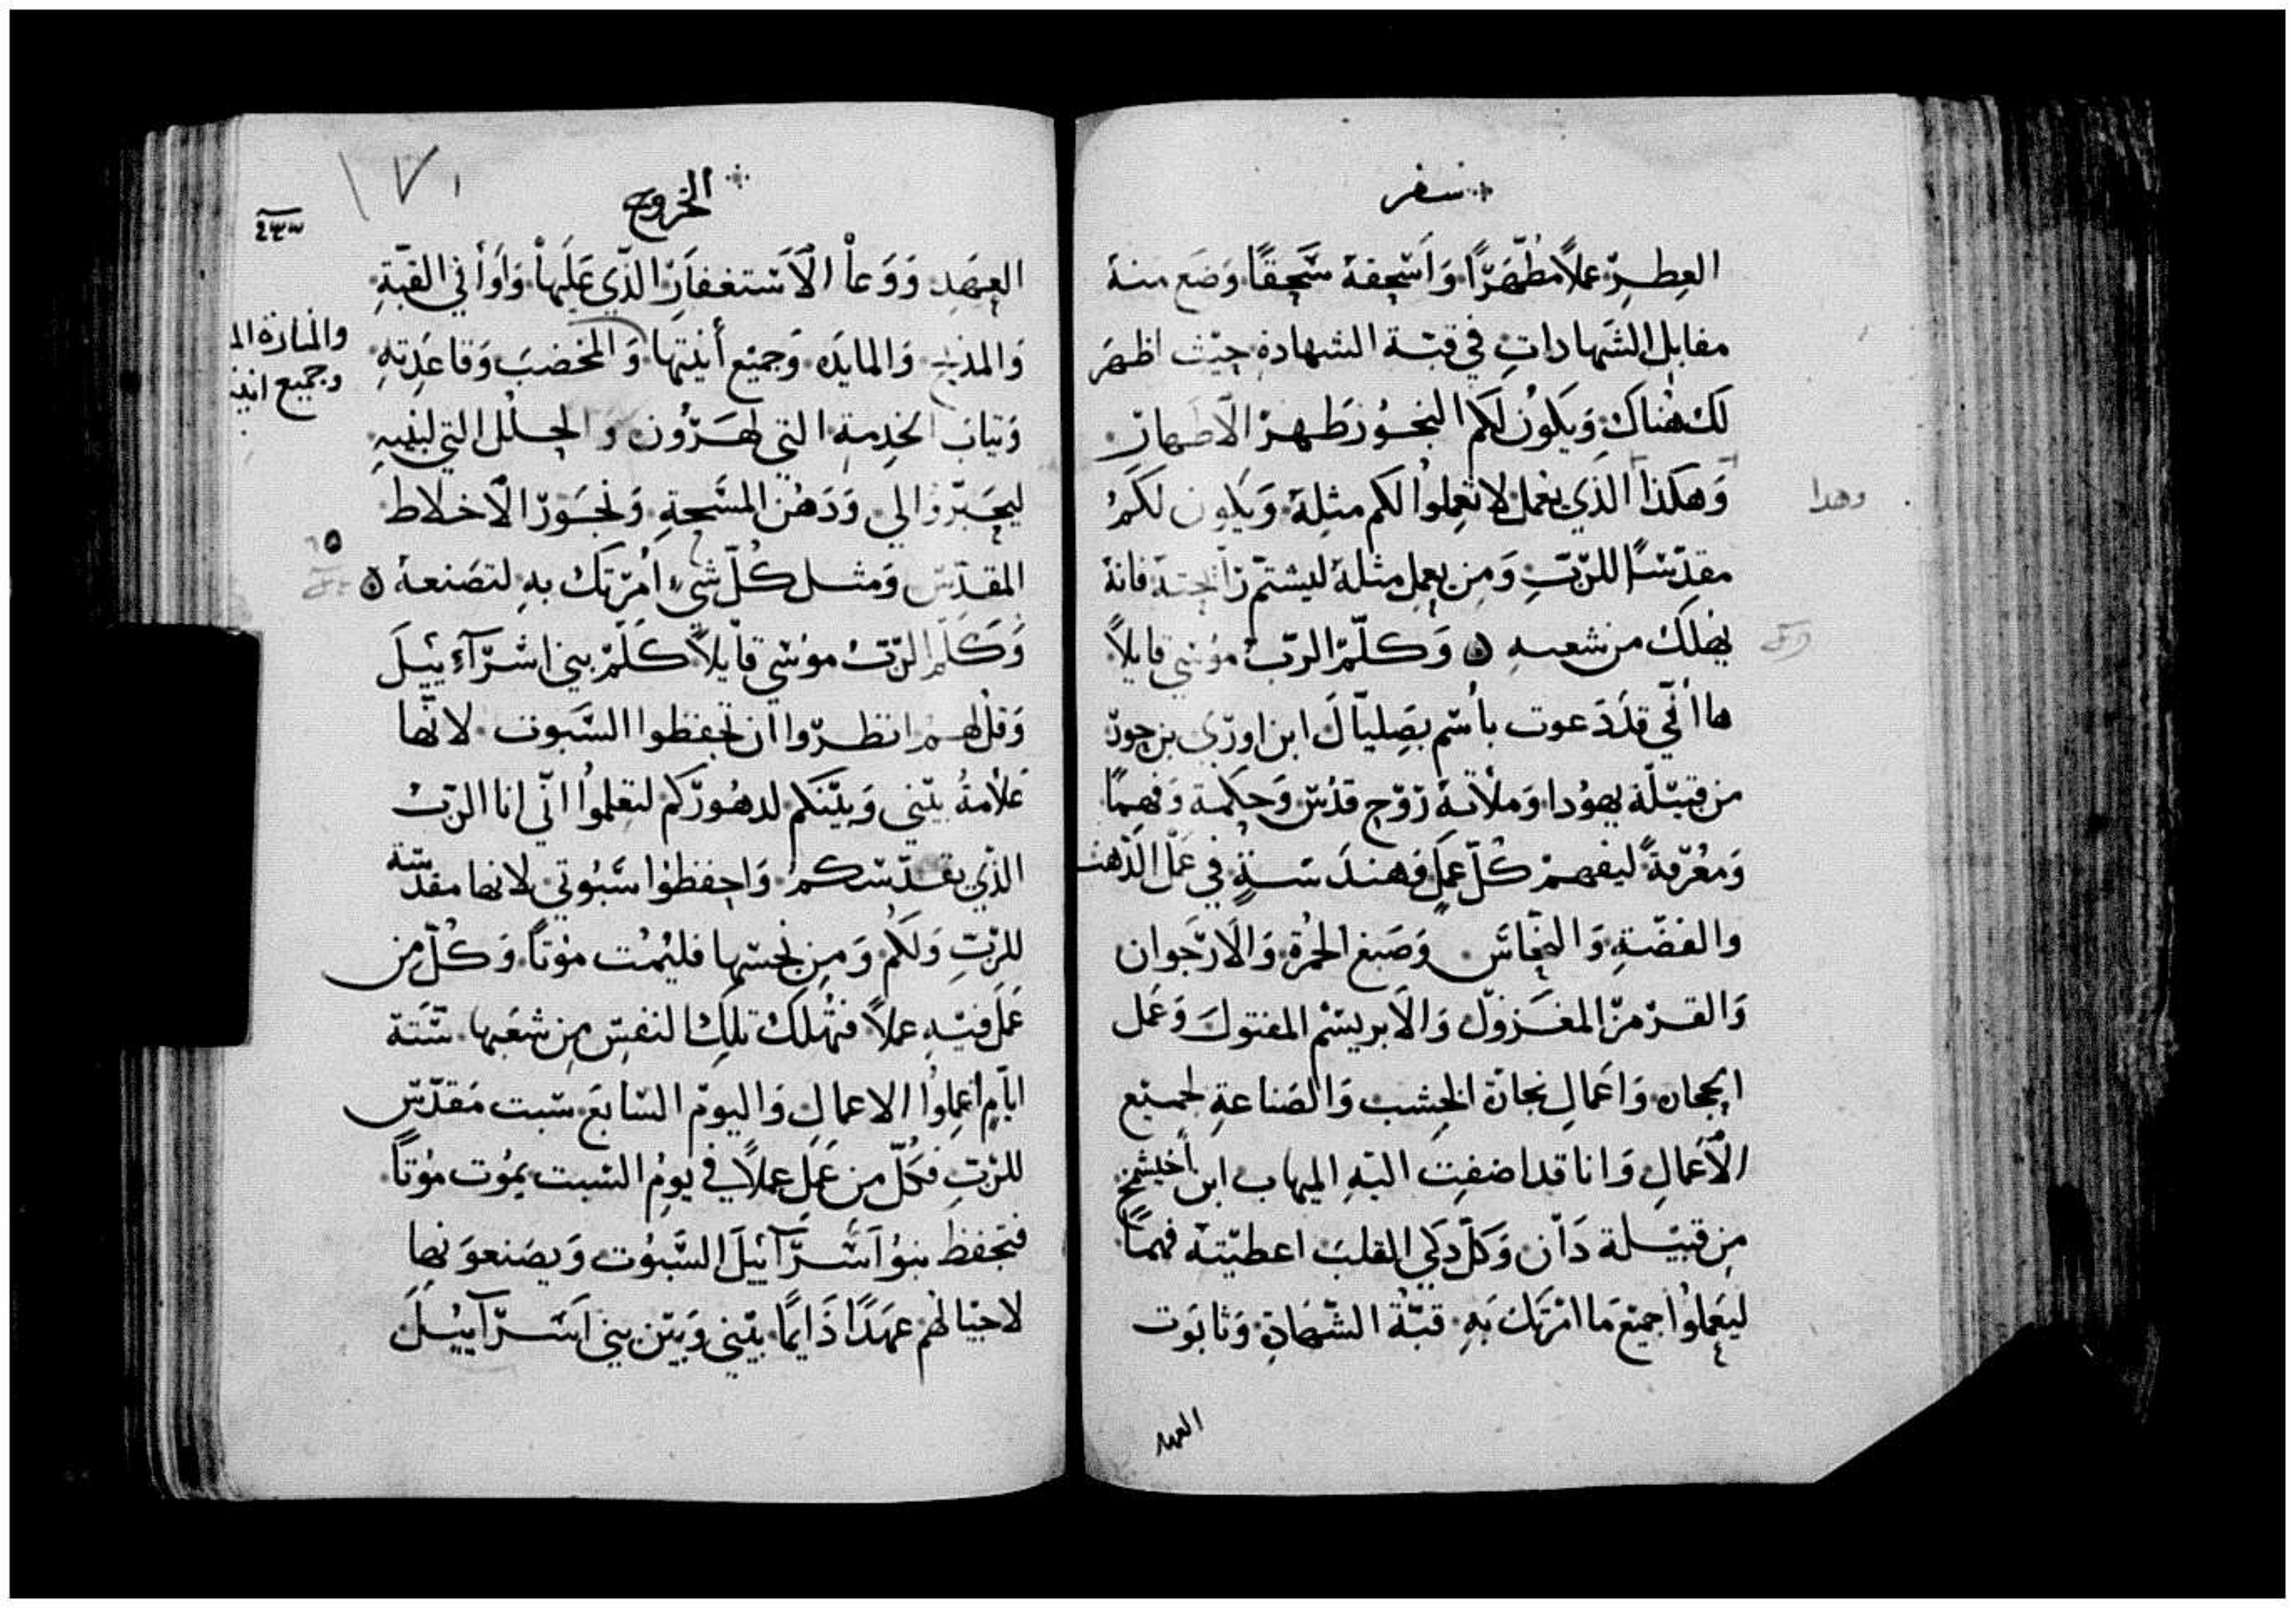 سفر
العِطرِ عملاً مُطهّرًا وَاسْحقهُ سَحقًا وَضَع منهُ
مقابل الشَهاداتِ في قبّة الشهادةِ حيْث اظهرَ
لكَ هُناكَ وَيكُونُ لكم البخُور طهرُ الاَطهار
وَهكذا الذّي يعمل لا تعمِلُوا لكم مثلهُ وَيكون لكمُ
وهدا
مقدّسًا للرّبِّ وَمن يعمِل مثلهُ ليشتمّ رَايحتهُ فانهُ
يهلكُ من شعبهِ ۞ وَكلّم الربّ مُوسَي قايلاً
ها انّي قدَ دَعوت باُسم بصِليّال ابن اورَي بن حور
من قبيْلة يهوُدا وَملأتهُ رُوْح قدُس وَحكمة وَفهمًا
وَمعُرفةً ليفهمْ كُلّ عمَل وَهندَسَةٍ في عَمَل الذهب
والفضّةِ وَالنحُاس وَصَبغ الحمُرة وَالاَرجَوان
وَالقرْمز المغزوُل وَالاَبريسَم المفتول وَعَمل
الحجاره وَاعَمالِ نجارة الخِشب وَالصَناعةِ لجميْع
الاَعَمالِ وَانا قد اضفت اليْهِ اليهاب ابن اخيشمخ
مِن قبيْلة دَان وَكلّ ذكي القلب اعطيْتهُ فهمًا
ليَعملوُا جميْع مَا امرْتكَ بَهِ قبّةُ الشهَادةِ وَتابوُت
العهد
الخروج
١٧١
٢٣٣
العهَدِ وَوَعاْ الاَسْتغفاَر الذّي عَليهاْ وَاوَانِي القبّةِ
وَالمذبح وَالمايدَه وَجميْع أَنيْتها وَالمخضبَ وَقاعَدِتهِ
والمنارة ال
وجميع انيت
وَثيابَ الخدِمة التي لهَرُون وَالحلل التي لبنيهِ
ليحبَرّوا لي وَدَهُن المسَحةِ وَبخوُر الاَخلاط
المقدّس وَمثل كُلّ شي اَمُرْتكَ بهِ لتصَنعهُ ۞
وَكلّم الرّبّ موُسَي قايْلاً كَلّمْ بنِي اسْرَآءِيْيلَ
وَقلْ لهم انظرُوا ان تحفظوا السَبوت لانّها
عَلامةُ بيْني وَبيْنكم لدهُورَكم لتعَلموُا انّي انا الربّ
الذّي يقدّسَكم وَاحفظوْا سَبوُتي لانها مقدّسة
للرّبّ وَلكُم وَمن نجسَها فليُمُت موُتاً وَكُلّ من
عَمَل فيْهِ عملاً فتُهلكُ تلك النفسَ مِن شعَبها ستَة
ايّامٍ اعمِلوُا الاعمال وَاليوم السَابعَ سَبت مُقدّسَ
للرّبّ فكُلّ من عَمَلِ عملاً في يومِ السَبت يموُت موُتاً
فتحفظ بنوُ اَسَّرَآئِيْلَ السَّبوُت وَيصَنعوَنها
لاحيْالهُم عهَدًا دَايمًا بيْني وَبيْن بني اَسْرَآييْلَ